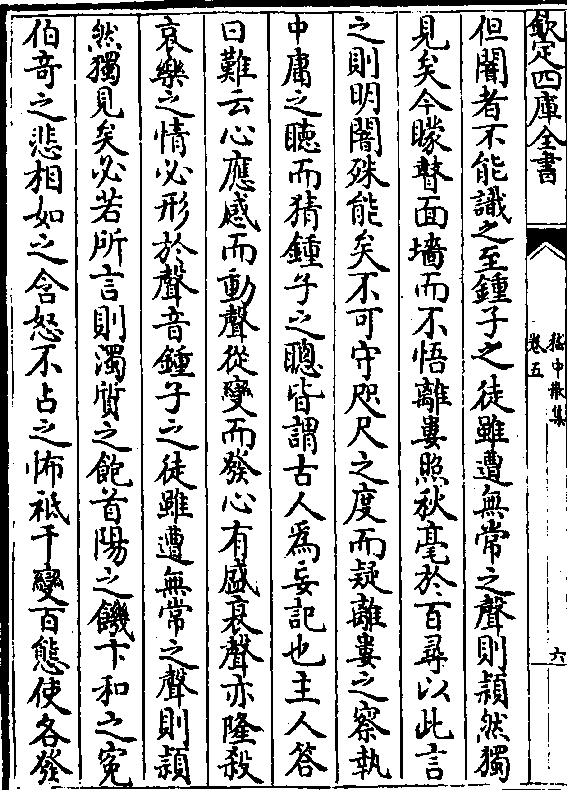 欽定四庫全書
嵇中散集
卷五
六
但闇者不能識之至鍾子之徒雖遭無常之聲則頴然獨
見矣今矇瞽面墻而不悟離婁照秋毫於百尋以此言
之則明闇殊能矣不可守咫尺之度而疑離婁之察執
中庸之聴而猜鍾子之聰皆謂古人為妄記也主人答
曰難云心應感而動聲從變而發心有盛衰聲亦隆殺
哀樂之情必形於聲音鍾子之徒雖遭無常之聲則頴
然獨見矣必若所言則濁質之飽首陽之饑卞和之寃
伯竒之悲相如之含怒不占之怖祇千變百態使各發